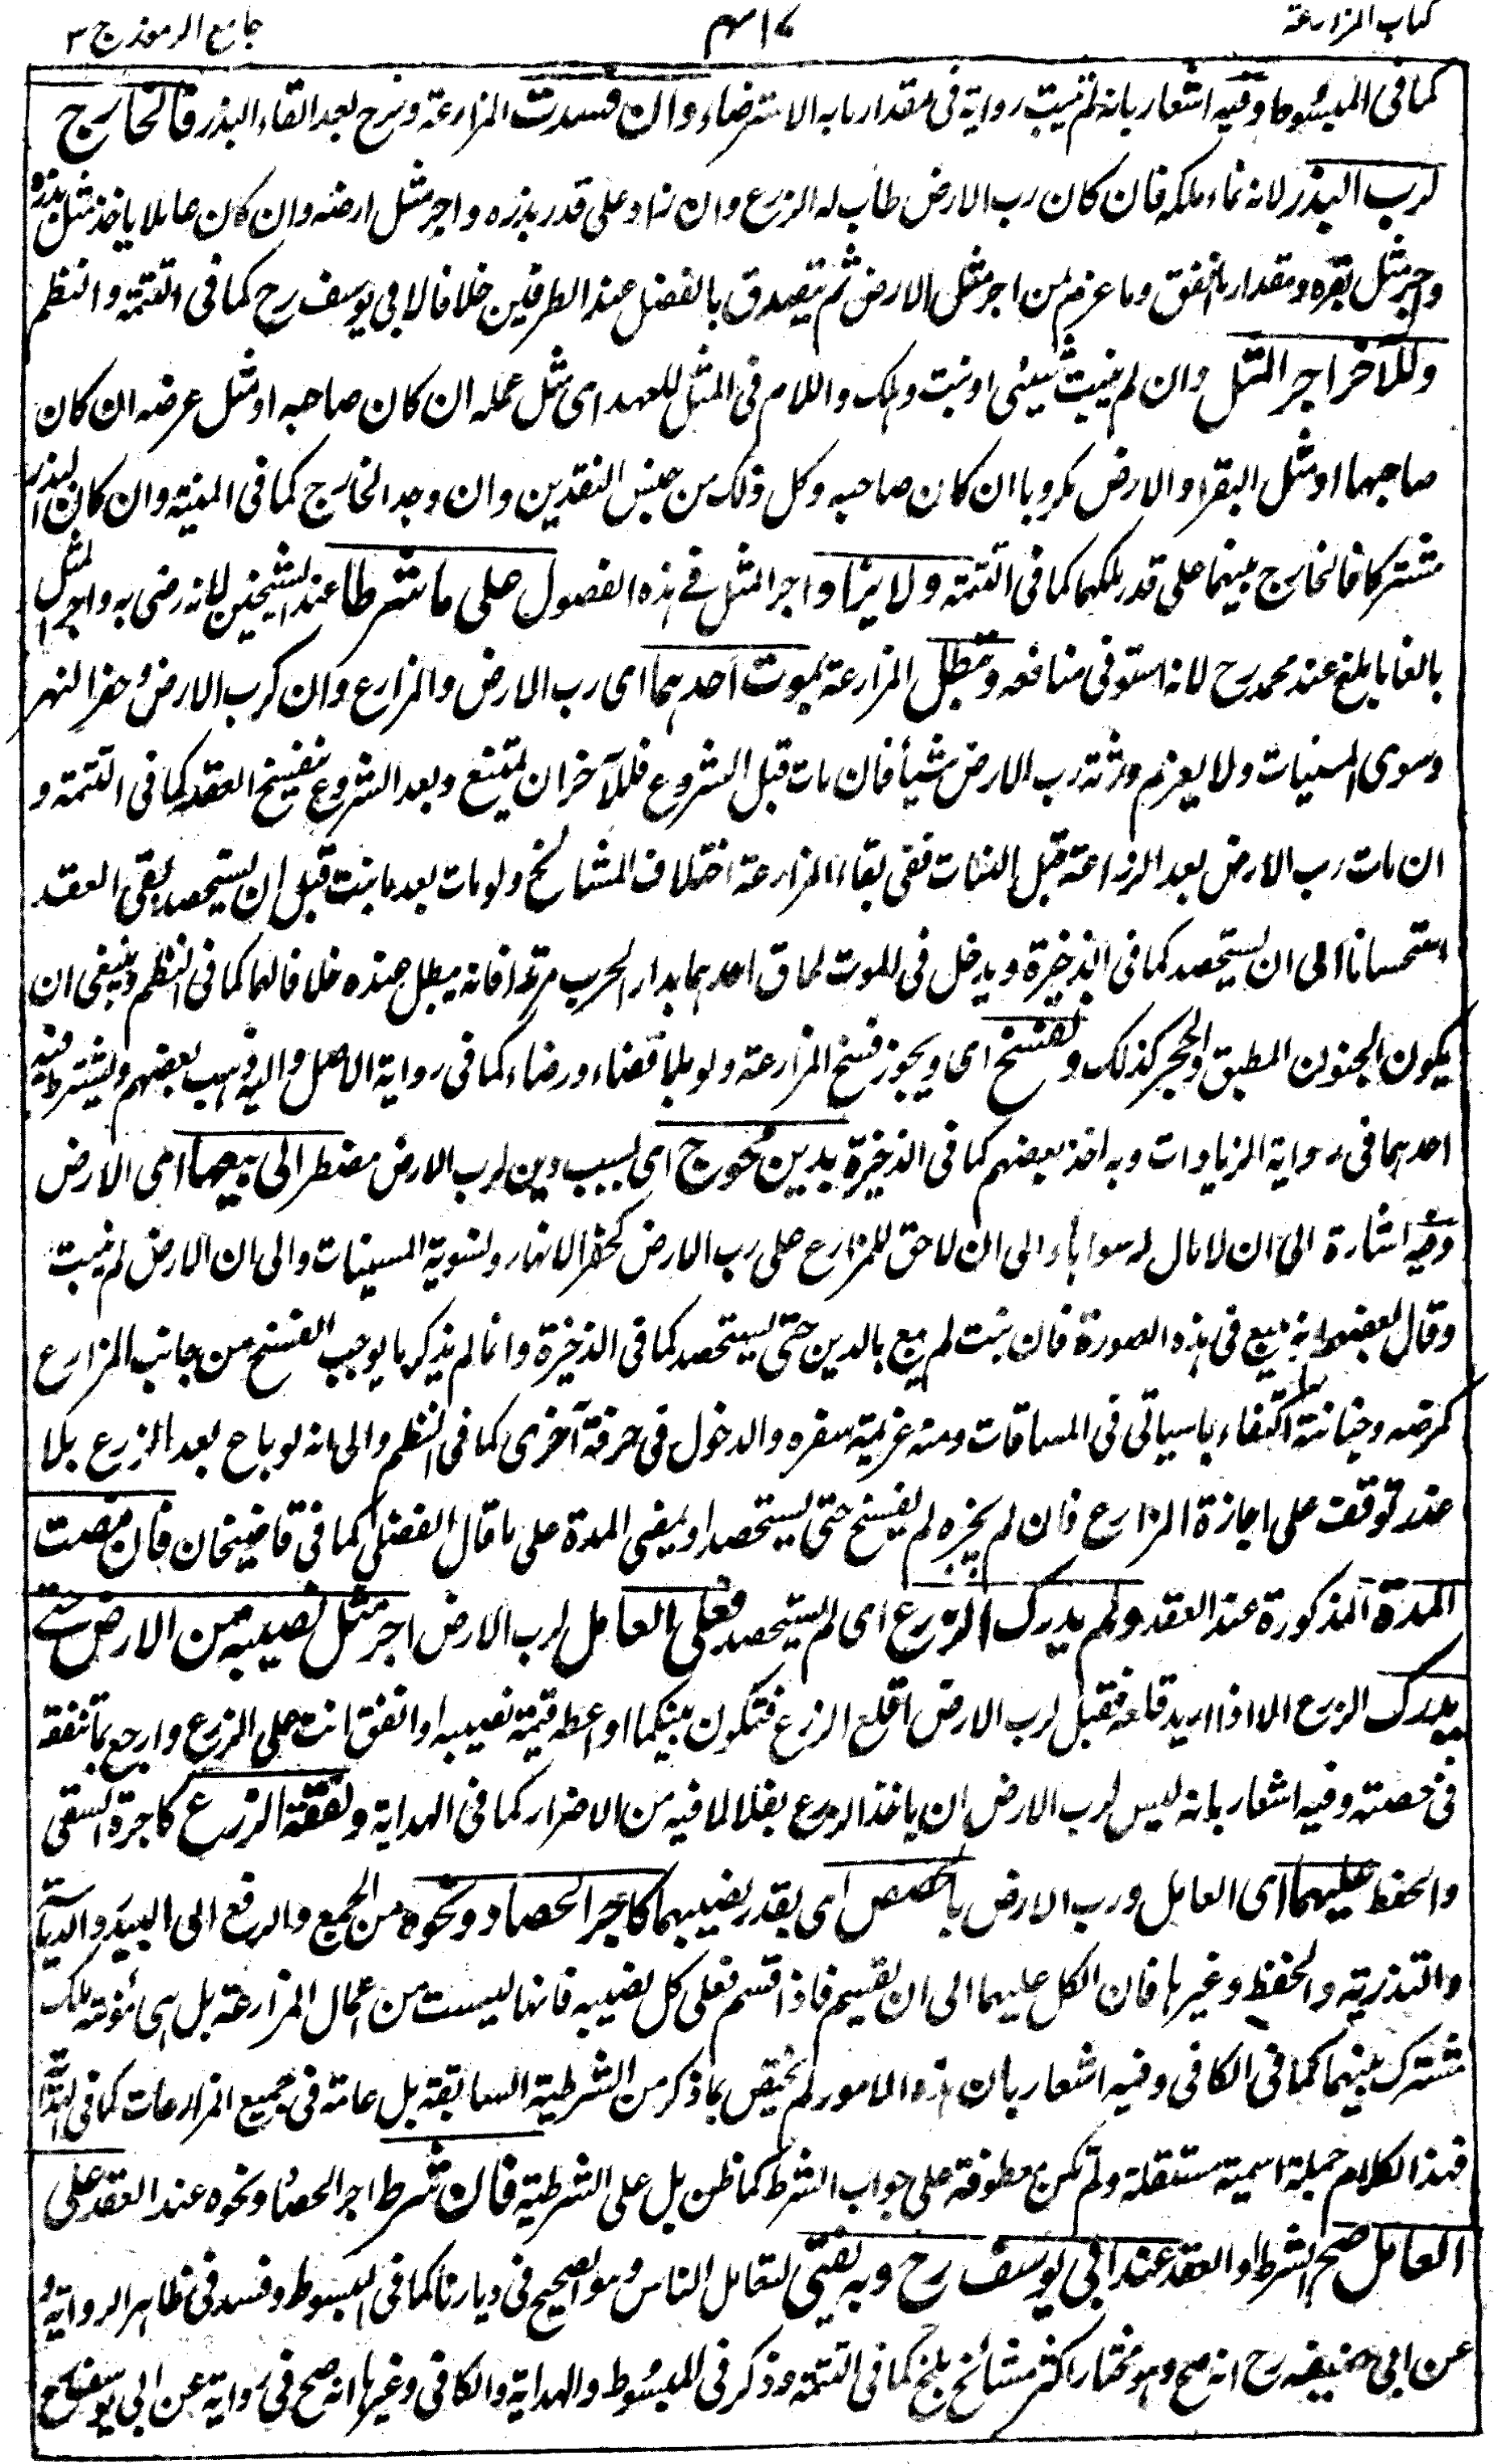 كتاب المزارعة
جامع الرموز ج ٣
كما فى المبسوط وفيه اشعار بانه لم تثبت رواية فى مقدار ما به الاسترضاء وان فسدت المزارعة وشرح بعد القاء البذر فالخارج
لرب البذر لانه نماء ملكه فان كان رب الارض طاب له الزرع وان زاد على قدر بذره واجر مثل ارضه وان كان عاملا ياخذ مثل بذره
واجر مثل بقره ومقدار ما انفق وما غرم من اجر مثل الارض ثم يتصدق بالفضل عند الطرفين خلافا لابى يوسف رح كما فى التتمة والنظم
وللآخر اجر المثل وان لم ينبت شيئى او نبت وهلك واللام فى المثل للعهد اى مثل عمله ان كان صاحبه او مثل عرضه ان كان
صاحبها او مثل البقر او الارض مكروبا ان كان صاحبه وكل ذلك من جنس النقدين وان وجد الخارج كما فى المنية وان كان البذر
مشتركا فالخارج بينهما على قدر ملكهما كما فى التتمة ولا يزاد اجر المثل فى هذه الفصول على ما شرطا عند الشيخين لانه رضى به واجر المثل
بالغا ما بلغ عند محمد رح لانه استوفى منافعه وتبطل المزارعة بموت احدهما اى رب الارض والمزارع وان كرب الارض وحفر النهر
وسوى المسنيات ولا يغرم ورثة رب الارض شيأ فان مات قبل الشروع فللآخر ان يمتنع وبعد الشروع ينفسخ العقد كما فى التتمة و
ان مات رب الارض بعد الزراعة قبل النبات ففى بقاء المزارعة اختلاف المشائخ ولو مات بعد ما نبت قبل ان يستحصد بقى العقد
استحسانا الى ان يستحصد كما فى الذخيرة ويدخل فى الموت لحاق احدهما بدار الحرب مرتدا فانه يبطل عنده خلافا لهما كما فى النظم وينبغى ان
يكون الجنون المطبق والحجر كذلك وتفسخ اى ويجوز فسخ المزارعة ولو بلا قضاء ورضاء كما فى رواية الاصل واليه ذهب بعضهم ويشترط فيه
احدهما فى رواية الزيادات وبه اخذ بعضهم كما فى الذخيرة بدين محوج اى بسبب دين لرب الارض مضطر الى بيعها اى الارض
وفيه اشارة الى ان لا مال له سواها والى ان لا حق للمزارع على رب الارض كحفر الانهار وتسوية المسينات والى ان الارض لم ينبت
وقال بعضهم انه يبيع فى هذه الصورة فان نبت لم يبع بالدين حتى يستحصد كما فى الذخيرة وانما لم يذكر ما يوجب الفسخ من جانب المزارع
كمرضه وخيانته اكتفاء بما سياتى فى المساقات ومنه عزيمة سفره والدخول فى حرفة آخرى كما فى النظم والى انه لو باع بعد الزرع بلا
عذر توقف على اجازة المزارع فان لم يجزه لم يفسخ حتى يستحصد او يمضى المدة على ما قال الفضلى كما فى قاضيخان فان مضت
المدة المذكورة عند العقد ولم يدرك الزرع اى لم يستحصد فعلى العامل لرب الارض اجر مثل نصيبه من الارض حتى
يدرك الزرع الا اذا اريد قلعه فقيل لرب الارض اقلع الزرع فتكون بينكما او اعطه قيمة نصيبه او انفق انت على الزرع وارجع بما تنفقه
فى حصته وفيه اشعار بانه ليس لرب الارض ان ياخذ الزرع بقلا لما فيه من الاضرار كما فى الهداية ونفقة الزرع كاجرة السقى
والحفظ عليهما اى العامل ورب الارض بالحصص اى بقدر نصيبهما كاجر الحصاد ونحوه من الجمع والرفع الى البيدر والدياسة
والتذرية والحفظ وغيرها فان الكل عليهما الى ان يقسم فاذا قسم فعلى كل نصيبه فانها ليست من اعمال المزارعة بل هى مؤنة ملك
مشترك بينهما كما فى الكافى وفيه اشعار بان هذه الامور لم يختص بما ذكر من الشرطية السابقة بل عامة فى جميع المزارعات كما فى
فهذا الكلام جملة اسمية مستقلة ولم تكن معطوفة على جواب الشرط كما ظن بل على الشرطية فان شرط اجر الحصاد ونحوه عند العقد على
العامل صح الشرط او العقد عند ابى يوسف رح وبه يفتى لتعامل الناس وهو الصحيح فى ديارنا كما فى المبسوط وفسد فى ظاهر الرواية و
عن ابى حنيفه رح انه صح وهو مختار اكثر مشائخ بلخ كما فى التتمة وذكر فى المبسوط والهداية والكافى وغيرها انه صح فى رواية عن ابى يوسف رح